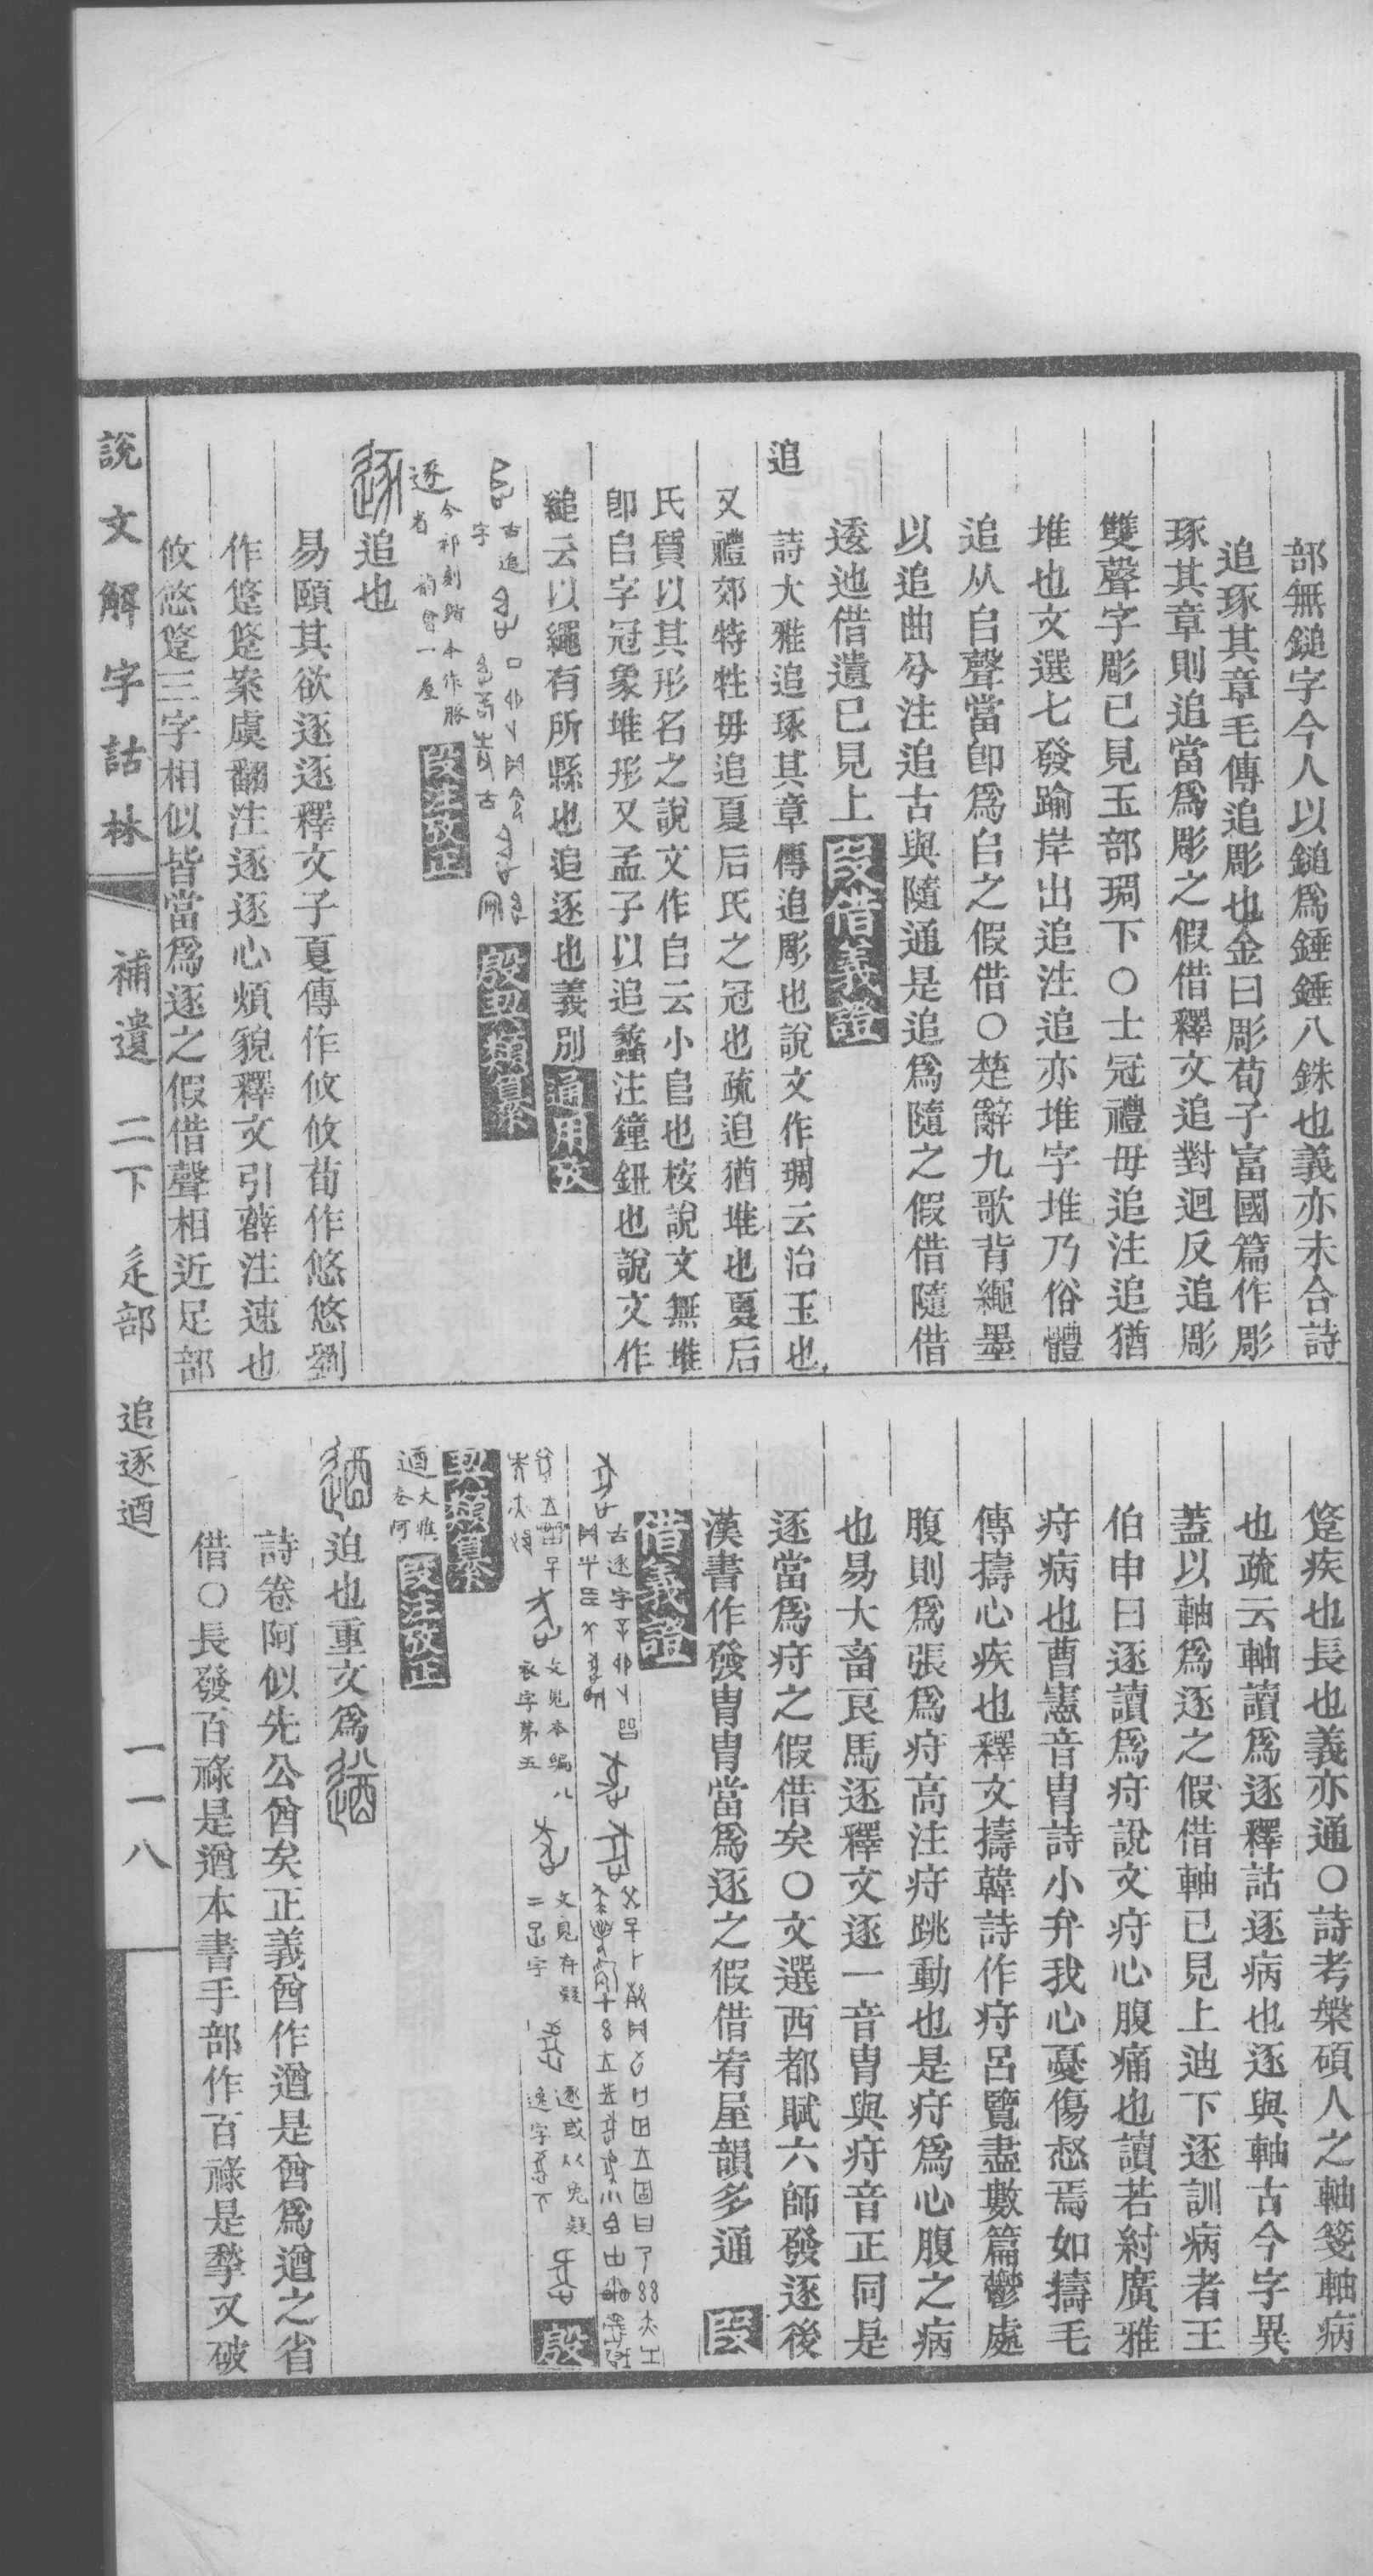 部無鎚字今人以鎚爲錘錘八銖也義亦未合詩
追琢其章毛傳追彫也金曰彫荀子富國篇作彫
琢其章則追當爲彫之假借釋文追對迴反追彫
雙聲字彫已見玉部琱下○士冠禮毋追注追猶
堆也文選七發踰岸出追注追亦堆字堆乃俗體
追从𠂤聲當卽爲𠂤之假借○楚辭九歌背繩墨
以追曲兮注追古與隨通是追爲隨之假借隨借
逶迆借遺已見上 段借義證
追 詩大雅追琢其章傳追彫也說文作琱云治玉也
又禮郊特牲毋追夏后氏之冠也疏追猶堆也夏后
氏質以其形名之說文作𠂤云小𨸏也桉說文無堆
卽𠂤字冠象堆形又孟子以追蠡注鐘鈕也說文作
縋云以繩有所縣也追逐也義別 通用攷
古追字 殷契類纂
逐 今祁刻踏本作豚省 韵會一屋 段注攷正
逐 追也
易頤其欲逐逐釋文子夏傳作攸攸荀作悠悠劉
作跾跾案虞翻注逐逐心煩貌釋文引薛注速也
攸悠跾三字相似皆當爲逐之假借聲相近足部
跾疾也長也義亦通○詩考槃碩人之軸箋軸病
也疏云軸讀爲逐釋詁逐病也逐與軸古今字異
蓋以軸爲逐之假借軸已見上迪下逐訓病者王
伯申曰逐讀爲疛說文疛心腹痛也讀若紂廣雅
疛病也曹憲音胄詩小弁我心憂傷惄焉如擣毛
傳擣心疾也釋文擣韓詩作疛呂覽盡數篇鬱處
腹則爲張爲疛高注疛跳動也是疛爲心腹之病
也易大畜良馬逐釋文逐一音胄與疛音正同是
逐當爲疛之假借矣○文選西都賦六師發逐後
漢書作發胄胄當爲逐之假借宥屋韻多通 段
借義證
古逐字
文見本編八 衣字第五
文見存疑 二 字
逐或从兔疑逸字 下 殷
契類纂
逎 大雅卷阿 段注攷正
迫也重文爲
詩卷阿似先公酋矣正義酋作遒是酋爲遒之省
借○長發百祿是遒本書手部作百祿是揫又破
說文解字詁林 補遺 二下 辵部 追逐逎 一一八